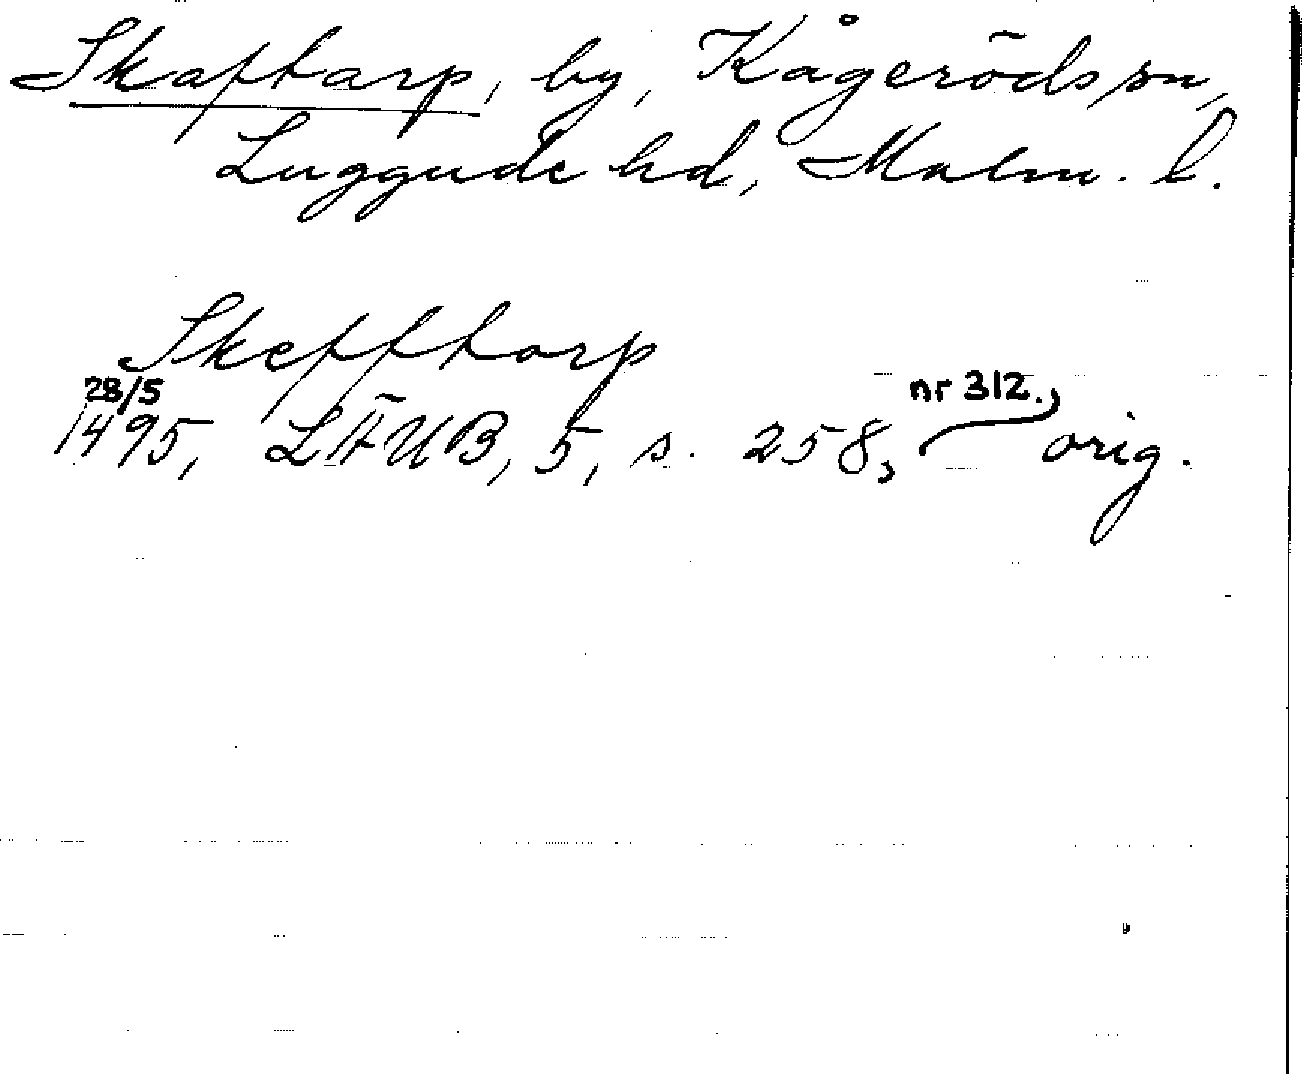 Skaftarp, by, Kågeröds sn,
Luggude hd, Malm. l.
Skefftorp
28/5 nr 312.,
1495, LÄUB, 5, s. 258, orig.